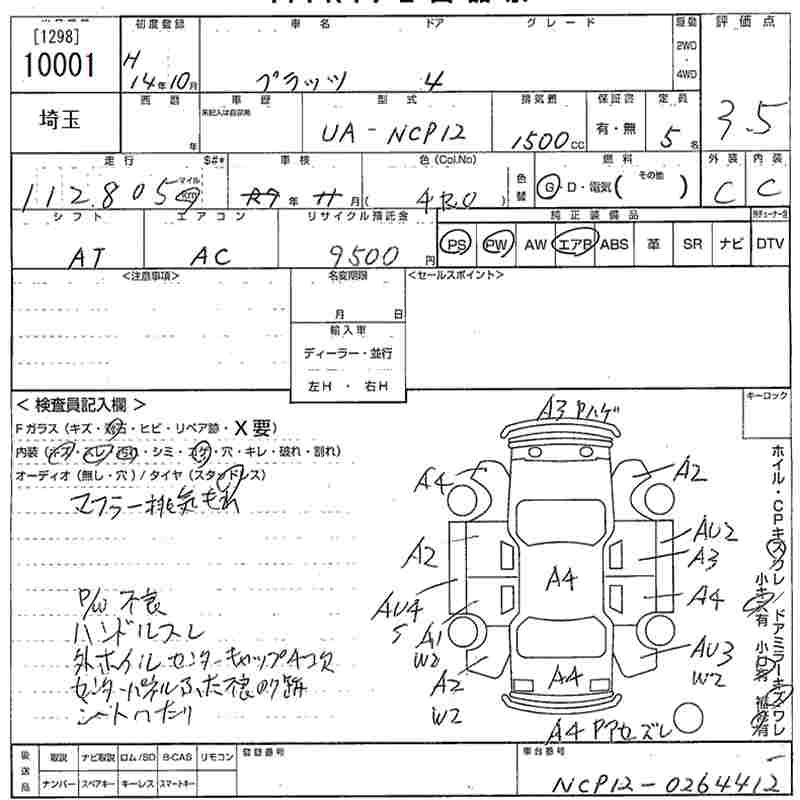 [1298]
10001
初度登録
H 14年10月
車名
プラッツ
ドア
4
グレード
駆動
2WD
・
4WD
評価点
3.5
埼玉
西暦
年
車歴
未記入は自家用
型式
UA-NCP12
排気量
1500cc
保証書
有・無
定員
5名
走行
$#*
112,805
マイル
km
車検
R7年11月
色(Col.No)
( 4R0 )
色替
燃料
G・D・電気( その他 )
外装
C
内装
C
シフト
AT
エアコン
AC
リサイクル預託金
9500円
純正装備品
PS PW AW エアB ABS 革 SR ナビ
DTV
<注意事項>
名変期限
月 日
<セールスポイント>
輸入車
ディーラー・並行
左H・右H
キーロック
<検査員記入欄>
Fガラス(キズ・飛石・ヒビ・リペア跡・X要)
内装(キズ・スレ・汚れ・シミ・コゲ・穴・キレ・破れ・割れ)
オーディオ(無し・穴)/タイヤ(スタッドレス)
マフラー排気もれ
P/W不良
ハンドルスレ
外ホイルセンターキャップ4コ欠
センターパネルふた不良のり跡
シートへたり
A3 Pハゲ
A4
A2
A2
AU2
A3
A4
A4
AU4
S
A1
W2
AU3
W2
A2
W2
A4
A4 Pアセズレ
ホイル・CPキズワレ/ドアミラーキズワレ
小キズ有 小凹有 補修有
後送品
取説 ナビ取説 ロム/SD B-CAS リモコン
ナンバー スペアキー キーレス スマートキー
登録番号
車台番号
NCP12-0264412